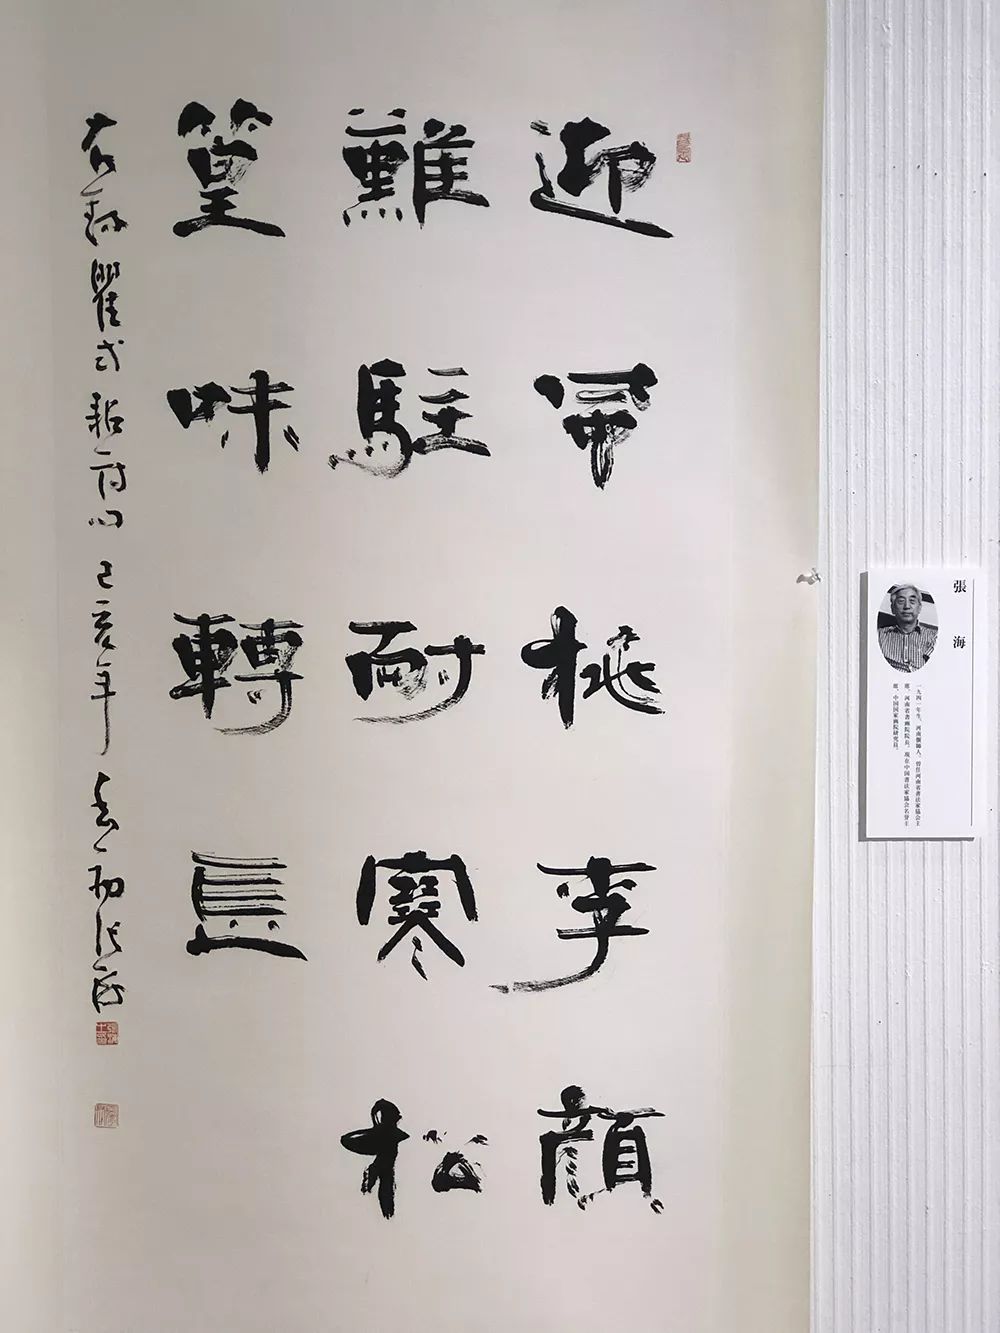 迎風桃李顔
難駐耐寒松
篁味轉長
右錄瞿式耜詩句 己亥年春初張海
張海
一九四一年生,河南偃師人。曾任河南省書法家協會主
席、河南省書畫院院長。現任中国書法家協會名譽主
席、中国国家画院研究員。